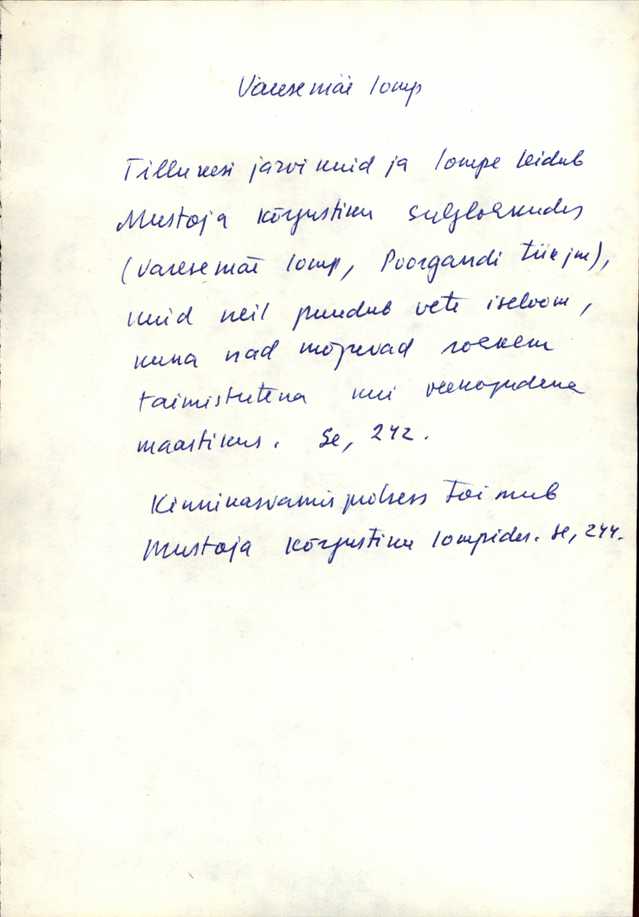 Varesemäe lomp
Tillukesi järvikuid ja lompe leidub
Mustoja kõrgustiku sulglohkudes
(Varesemäe lomp, Poorgandi tiik jm),
kuid neil puudub vete iseloom,
kuna nad mõjuvad rohkem
taimistutena kui veekogudena
maastikus. Se, 242.
Kinnikasvamisprotsess toimub
Mustoja kõrgustiku lompides. Se, 244.